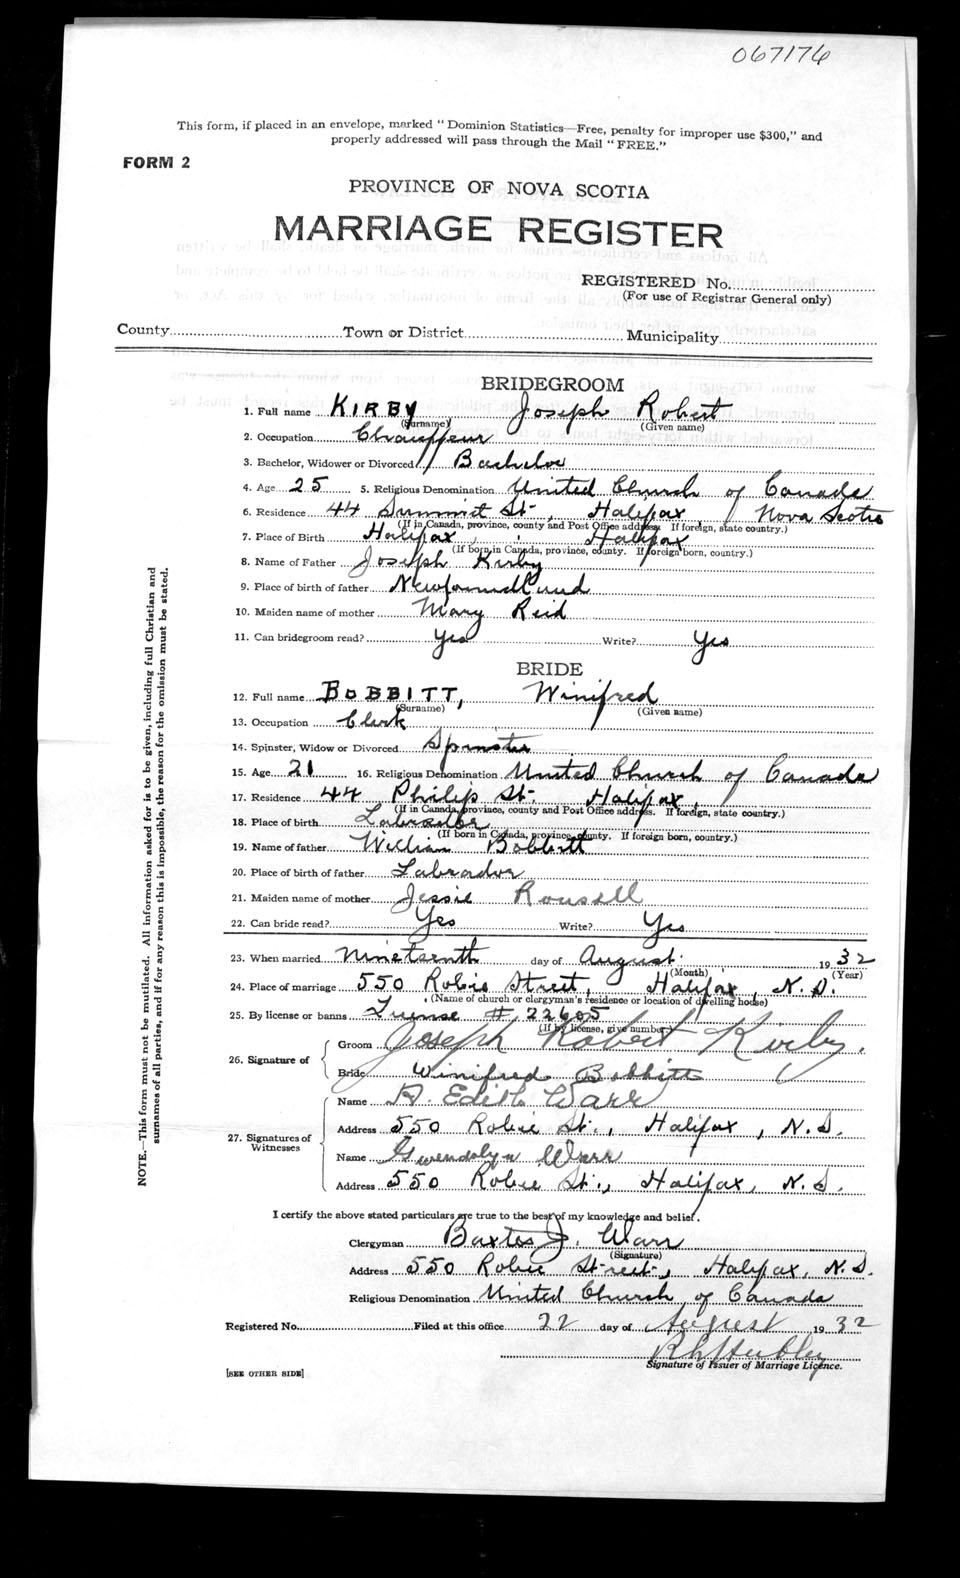 067176
This form, if placed in an envelope, marked " Dominion Statistics—Free, penalty for improper use $300," and
properly addressed will pass through the Mail " FREE."
FORM 2
PROVINCE OF NOVA SCOTIA
MARRIAGE REGISTER
REGISTERED No.
(For use of Registrar General only)
County Town or District Municipality
BRIDEGROOM
1. Full name KIRBY Joseph Robert
(Surname) (Given name)
2. Occupation Chauffeur
3. Bachelor, Widower or Divorced Bachelor
4. Age 25 5. Religious Denomination United Church of Canada
6. Residence 44 Summit St., Halifax Nova Scotia
(If in Canada, province, county and Post Office address. If foreign, state country.)
7. Place of Birth Halifax, Halifax
(If born in Canada, province, county. If foreign born, country.)
8. Name of Father Joseph Kirby
9. Place of birth of father Newfoundland
10. Maiden name of mother Mary Reid
11. Can bridegroom read? Yes Write? Yes
BRIDE
12. Full name BOBBITT, Winifred
(Surname) (Given name)
13. Occupation Clerk
14. Spinster, Widow or Divorced Spinster
15. Age 21 16. Religious Denomination United Church of Canada
17. Residence 44 Philip St. Halifax,
(If in Canada, province, county and Post Office address. If foreign, state country.)
18. Place of birth Labrador
(If born in Canada, province, county. If foreign born, country.)
19. Name of father William Bobbitt
20. Place of birth of father Labrador
21. Maiden name of mother Jessie Roussell
22. Can bride read? Yes Write? Yes
23. When married Nineteenth day of August 1932
(Month) (Year)
24. Place of marriage 550 Robie Street, Halifax, N.S.
(Name of church or clergyman's residence or location of dwelling house)
25. By license or banns License # 22605
(If by license, give number)
26. Signature of
Groom Joseph Robert Kirby.
Bride Winifred Bobbitt
27. Signatures of Witnesses
Name A. Edith Warr
Address 550 Robie St., Halifax, N.S.
Name Gwendolyn Warr
Address 550 Robie St., Halifax, N.S.
I certify the above stated particulars are true to the best of my knowledge and belief.
Clergyman Baxter J. Warr
(Signature)
Address 550 Robie Street, Halifax, N.S.
Religious Denomination United Church of Canada
Registered No. Filed at this office 22 day of August 1932
Signature of Issuer of Marriage Licence.
[SEE OTHER SIDE]
NOTE.—This form must not be mutilated. All information asked for is to be given, including full Christian and
surnames of all parties, and if for any reason this is impossible, the reason for the omission must be stated.